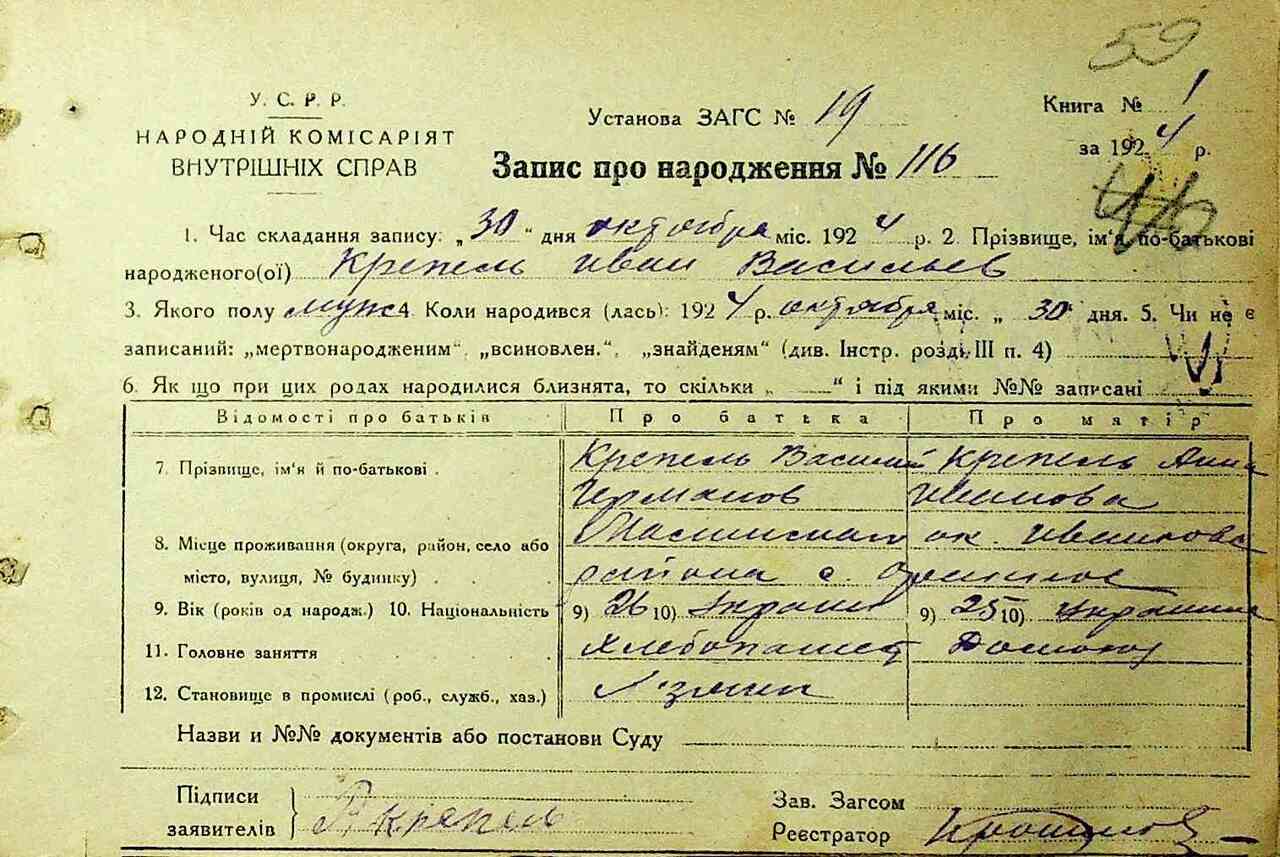 59
У. С. Р. Р.
НАРОДНІЙ КОМІСАРІЯТ
ВНУТРІШНІХ СПРАВ
Установа ЗАГС № 19
Книга № 1
за 1924 р.
Запис про народження № 116
1. Час складання запису: „30“ дня октобра міс. 1924 р. 2. Прізвище, ім'я, по-батькові
народженого(ої) Крепель Иван Васильев
3. Якого полу муж 4 Коли народився (лась): 1924 р. октября міс. „ 30 дня. 5. Чи не є
записаний: „мертвонародженим“, „всиновлен.“, „знайденям“ (див. Інстр. розді. III п. 4)
6. Як що при цих родах народилися близнята, то скільки „ “ і під якими №№ записані
Відомості про батьків Про батька Про матір
7. Прізвище, ім'я й по-батькові . Крепель Василий Крепель Анна
Германов Иванова
8. Місце проживання (округа, район, село або ок. Иванова
місто, вулиця, № будинку) . . района с.
9. Вік (років од народж.) 10. Національність 9) 26 10) Украин 9) 25 10) Украинка
11. Головне заняття Хлебопашец
12. Становище в промислі (роб., служб., хаз.)
Назви и №№ документів або постанови Суду
Підписи
заявителів } Крепель
Зав. Загсом
Реєстратор